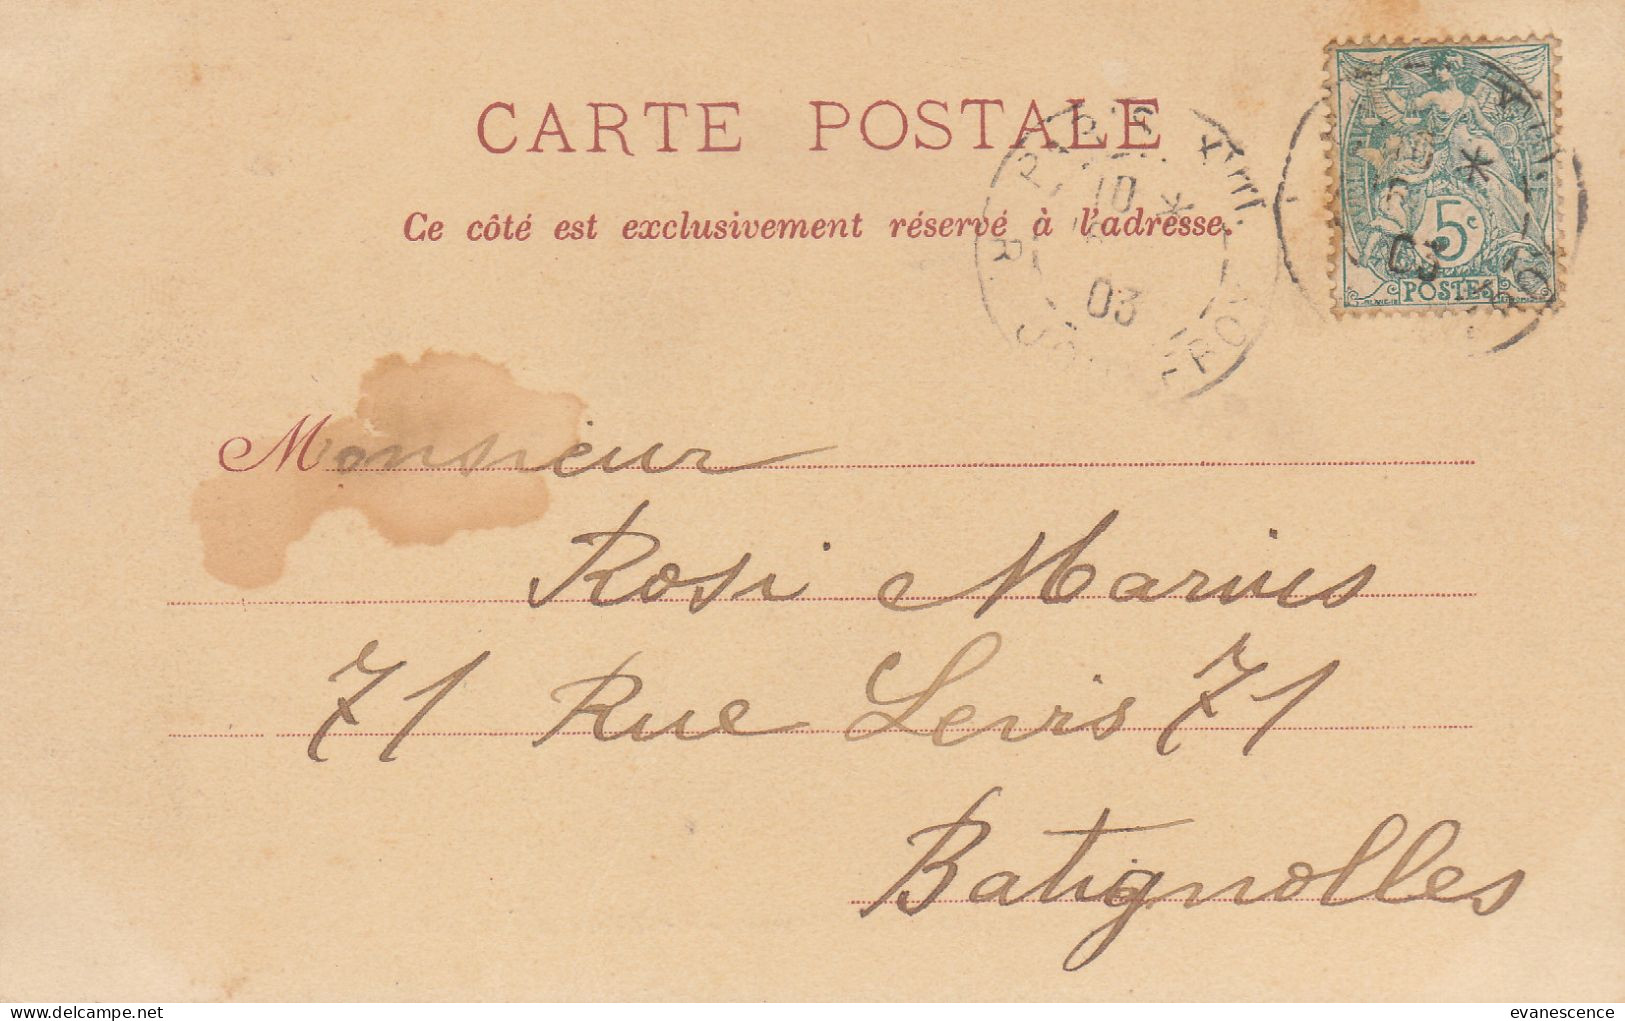 CARTE POSTALE
Ce côté est exclusivement réservé à l'adresse.
PARIS XVIII
R.
10
*
03
10
*
03
5c
POSTES
Monsieur
Rosi Marius
71 Rue Levis 71
Batignolles
delcampe.net
evanescence